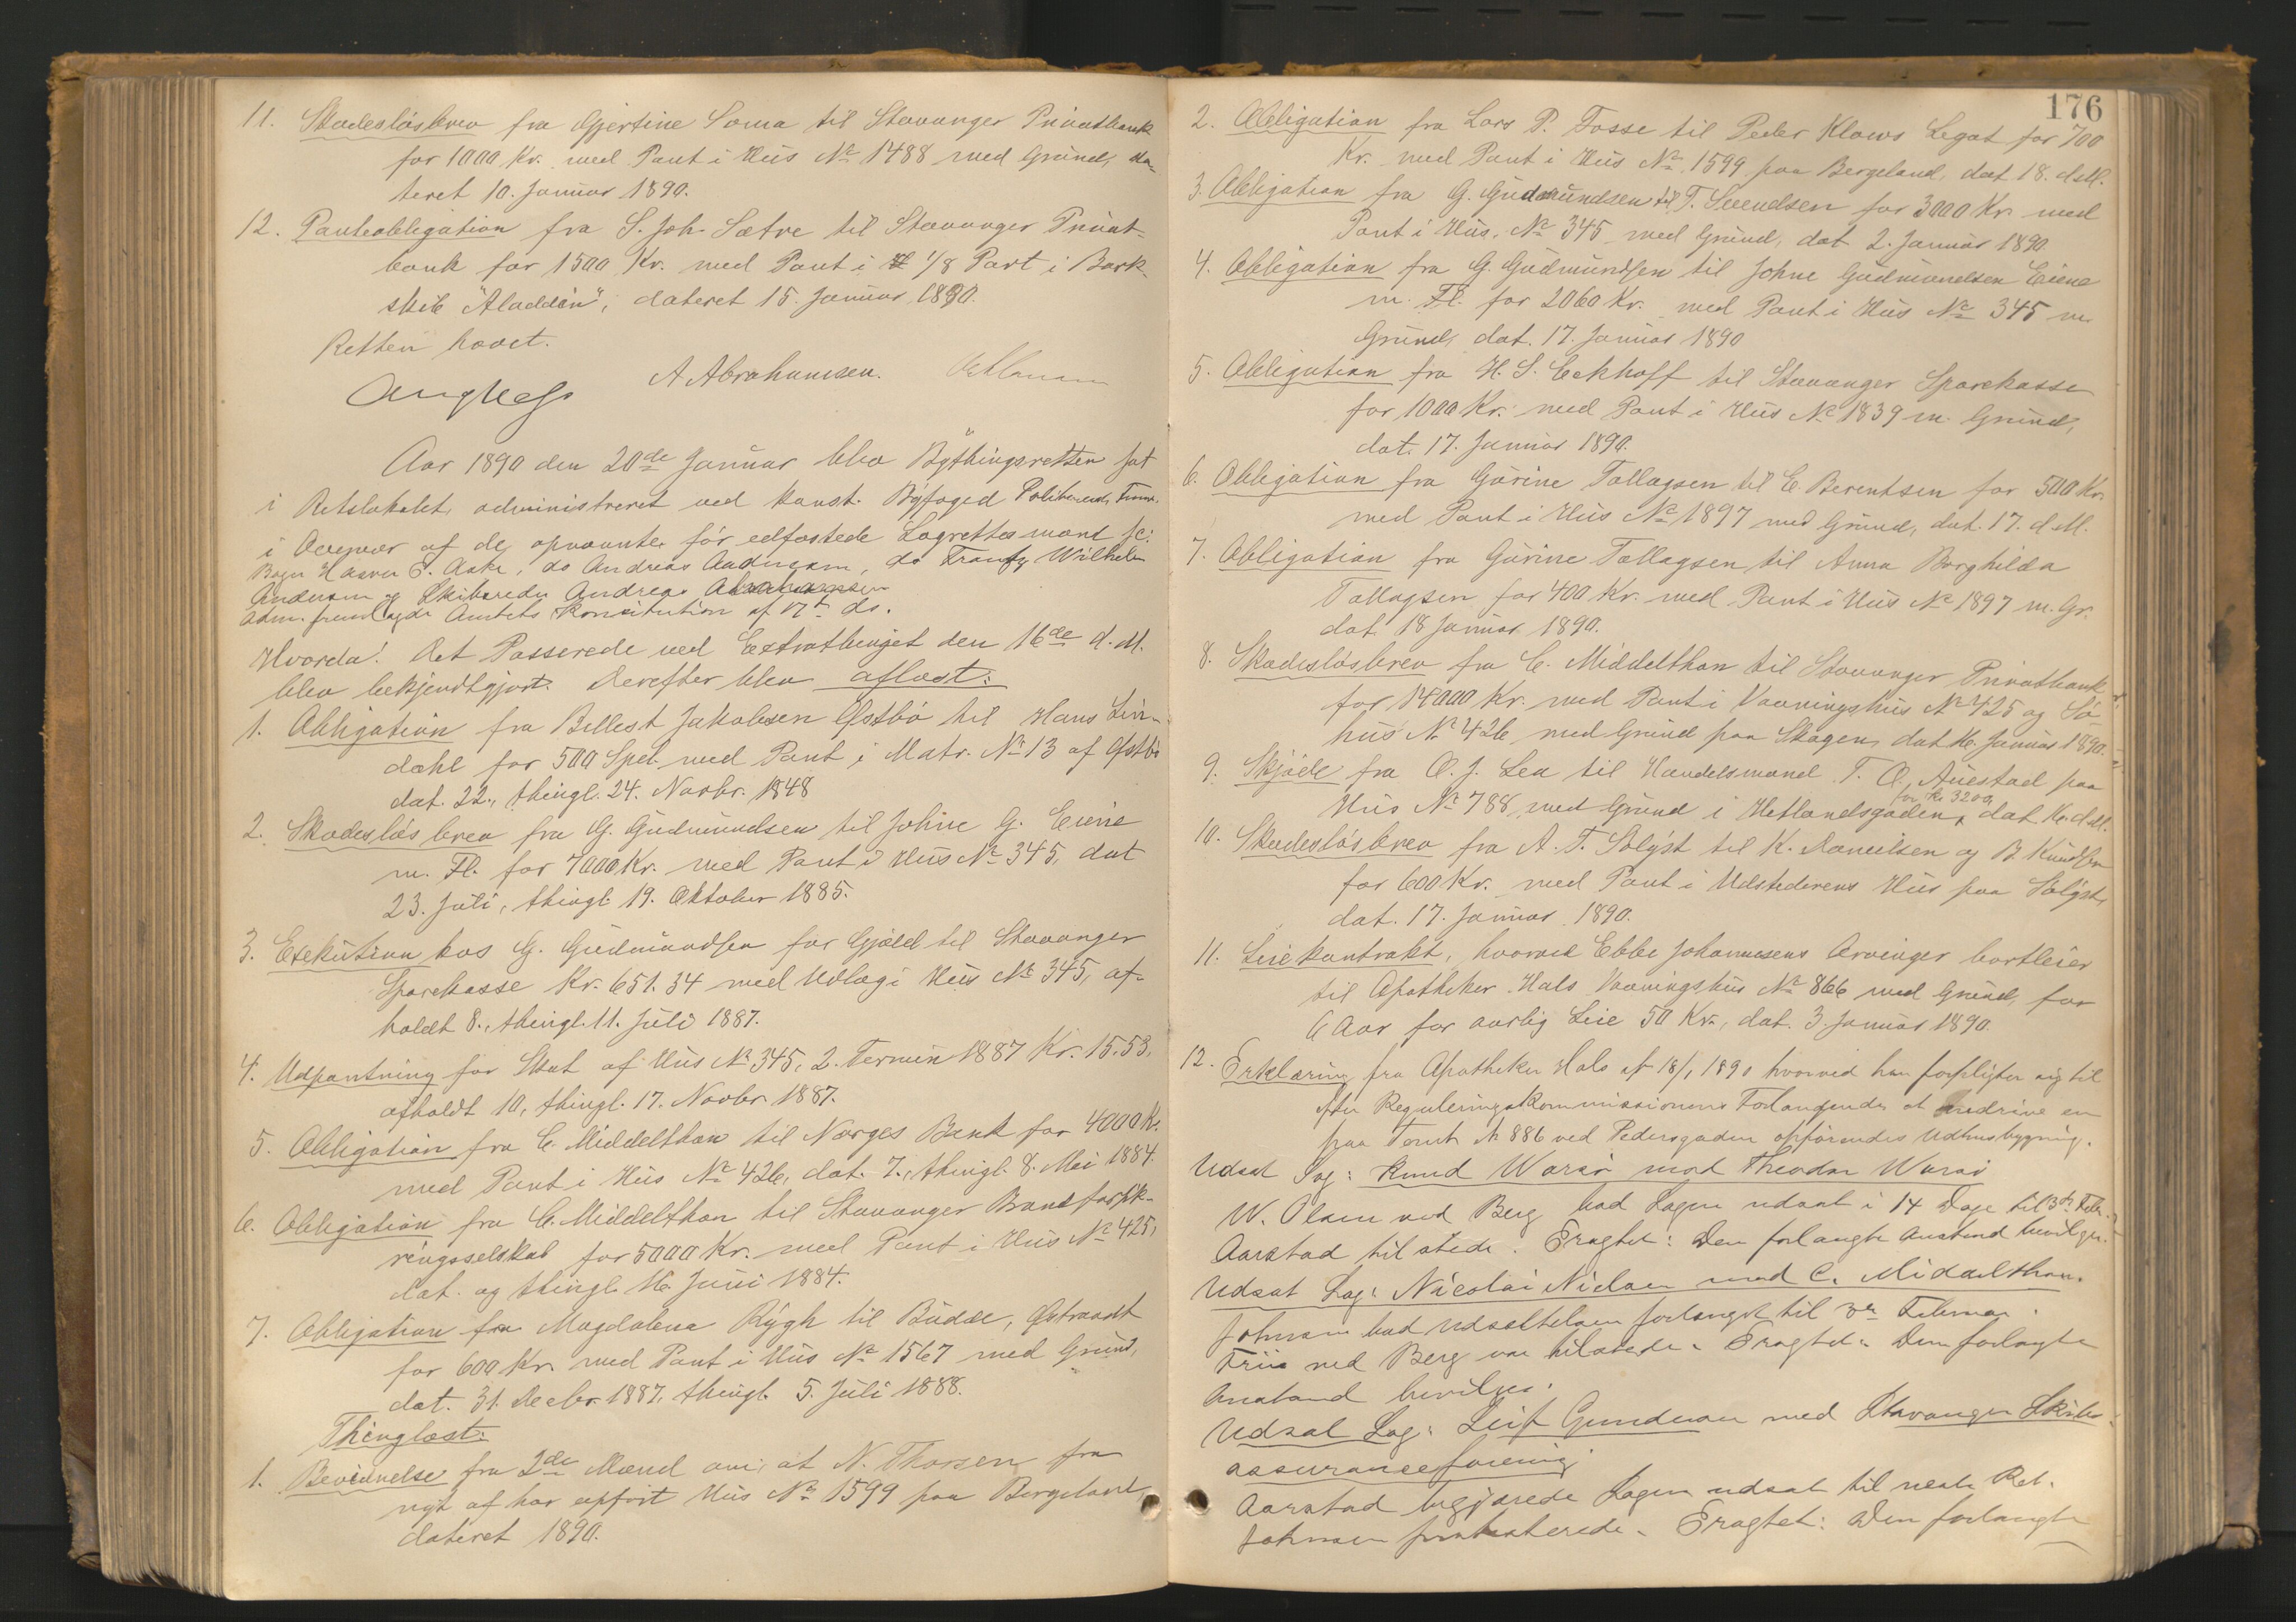 11. Skadesløsbrev fra Gjertine Soma til Stavanger Privatbank
for 1000 Kr. med Pant i Hus No 1488 med Grund, da-
teret 10. Januar 1890.
12. Panteobligation fra S. Joh. Sætre til Stavanger Privat-
bank for 1500 Kr. med Pant i 1/8 Part i Bark-
skib "Aladdin", dateret 15. Januar 1890.
Retten hævet.
A Abrahamsen.
Aar 1890 den 20de Januar blev Bythingsretten sat
i Retslokalet, administreret ved konst. Byfoged
i Overvær af de opnævnte før edfæstede Lagrettesmænd
Andreas Aadnesen, do Wilhelm
Andersen og Skibsreder Andreas Abrahamsen
Adm. fremlagde Amtets Konstitution af 17de ds.
Hvorda! Det Passerede ved Extrathinget den 16de d. M.
blev bekjendtgjort. Derefter blev aflæst:
1. Obligation fra Bellest Jakobsen Østbø til Hans Lin-
dahl for 500 Spd. med Pant i Matr. No 13 af Østbø
dat. 22., thingl. 24. Novbr. 1848
2. Skadesløsbrev fra G. Gudmundsen til Johne G. Eiene
m. Fl. for 7000 Kr. med Pant i Hus No 345, dat
23. Juli, thingl. 19. Oktober 1885.
3. Exekution hos G. Gudmundsen for Gjæld til Stavanger
Sparekasse Kr. 651.34 med Udlæg i Hus No 345, af-
holdt 8., thingl. 11. Juli 1887.
4. Udpantning for Skat af Hus No 345, 2. Termin 1887 Kr. 15.53,
afholdt 10, thingl. 17. Novbr. 1887.
5. Obligation fra C. Middelthon til Norges Bank for 4000 Kr.
med Pant i Hus No 426, dat. 7., thingl. 8. Mai 1884.
6. Obligation fra C. Middelthon til Stavanger Brandforsik-
ringsselskab for 5000 Kr. med Pant i Hus No 425,
dat. og thingl. 16. Juni 1884.
7. Obligation fra Magdalena Rygh til Budde, Østraadt
for 600 Kr. med Pant i Hus No 1567 med Grund,
dat. 31. Decbr. 1887, thingl. 5. Juli 1888.
Thinglæst:
1. Bevidnelse fra 2de Mænd om, at N. Thorsen fra
nyt af har opført Hus No 1599 paa Bergeland,
dateret 1890.
176
2. Obligation fra Lars P. Fosse til Peder Klows Legat for 700
Kr. med Pant i Hus No 1599 paa Bergeland, dat. 18. d.M.
3. Obligation fra G. Gudmundsen til T. Svendsen for 3000 Kr. med
Pant i Hus No 345 med Grund, dat. 2. Januar 1890
4. Obligation fra G. Gudmundsen til Johne Gudmundsen Eiene
m. Fl. for 2060 Kr. med Pant i Hus No 345 m
Grund, dat. 17. Januar 1890
5. Obligation fra H. S. Eckhoff til Stavanger Sparekasse
for 1000 Kr. med Pant i Hus No 1839 m Grund,
dat. 17. Januar 1890.
6. Obligation fra Gurine Tallagsen til E. Berentsen for 500 Kr.
med Pant i Hus No 1897 med Grund, dat. 17. d.M.
7. Obligation fra Gurine Tallagsen til Anna Borghilda
Tallagsen for 400 Kr. med Pant i Hus No 1897 m. Gr.
dat. 18 Januar 1890.
8. Skadesløsbrev fra C. Middelthon til Stavanger Privatbank
for 14000 Kr. med Pant i Vaaningshus No 425 og Sø-
hus No 426 med Grund paa Skagen, dat. 16. Januar 1890.
9. Skjøde fra O. J. Lea til Handelsmand T. O. Auestad paa
for Kr 3200
Hus No 788 med Grund i Hetlandsgaden, dat. 16. d.M.
10. Skadesløsbrev fra A. T. Solyst til K. Danielsen og B. Knudsen
for 600 Kr. med Pant i Udstederens Hus paa Solyst,
dat. 17. Januar 1890.
11. Leiekontrakt, hvorved Ebbe Johannesens Arvinger bortleier
til Apotheker Hals Vaaningshus No 866 med Grund, for
6 Aar for aarlig Leie 50 Kr., dat. 3 Januar 1890.
12. Erklæring fra Apotheker Hals af 18/1 1890 hvorved han forpligter sig til
efter Reguleringskommissionens Forlangende at en
paa Tomt No 886 ved Pedersgaden opførendes Udhusbygning.
Udsat Sag: Knud Warsø mod Theodor Warsø
W. Olsen ved Berg bad Sagen udsat i 14 Dage til 3de Febr.
Aarstad tilstede. Eragtet: Den forlangte Anstand bevilges.
Udsat Sag: Nicolai Nielsen mod C. Middelthon.
Johnsen bad Udsættelsen forlænget til 3de Februar.
Friis ved Berg var tilstede. Eragtet: Den forlangte
Anstand bevilges.
Udsat Sag: Leif Gundersen mod Stavanger Skibs-
assuranceforening
Aarstad begjærede Sagen udsat til næste Ret.
Johnsen protesterede. Eragtet: Den forlangte